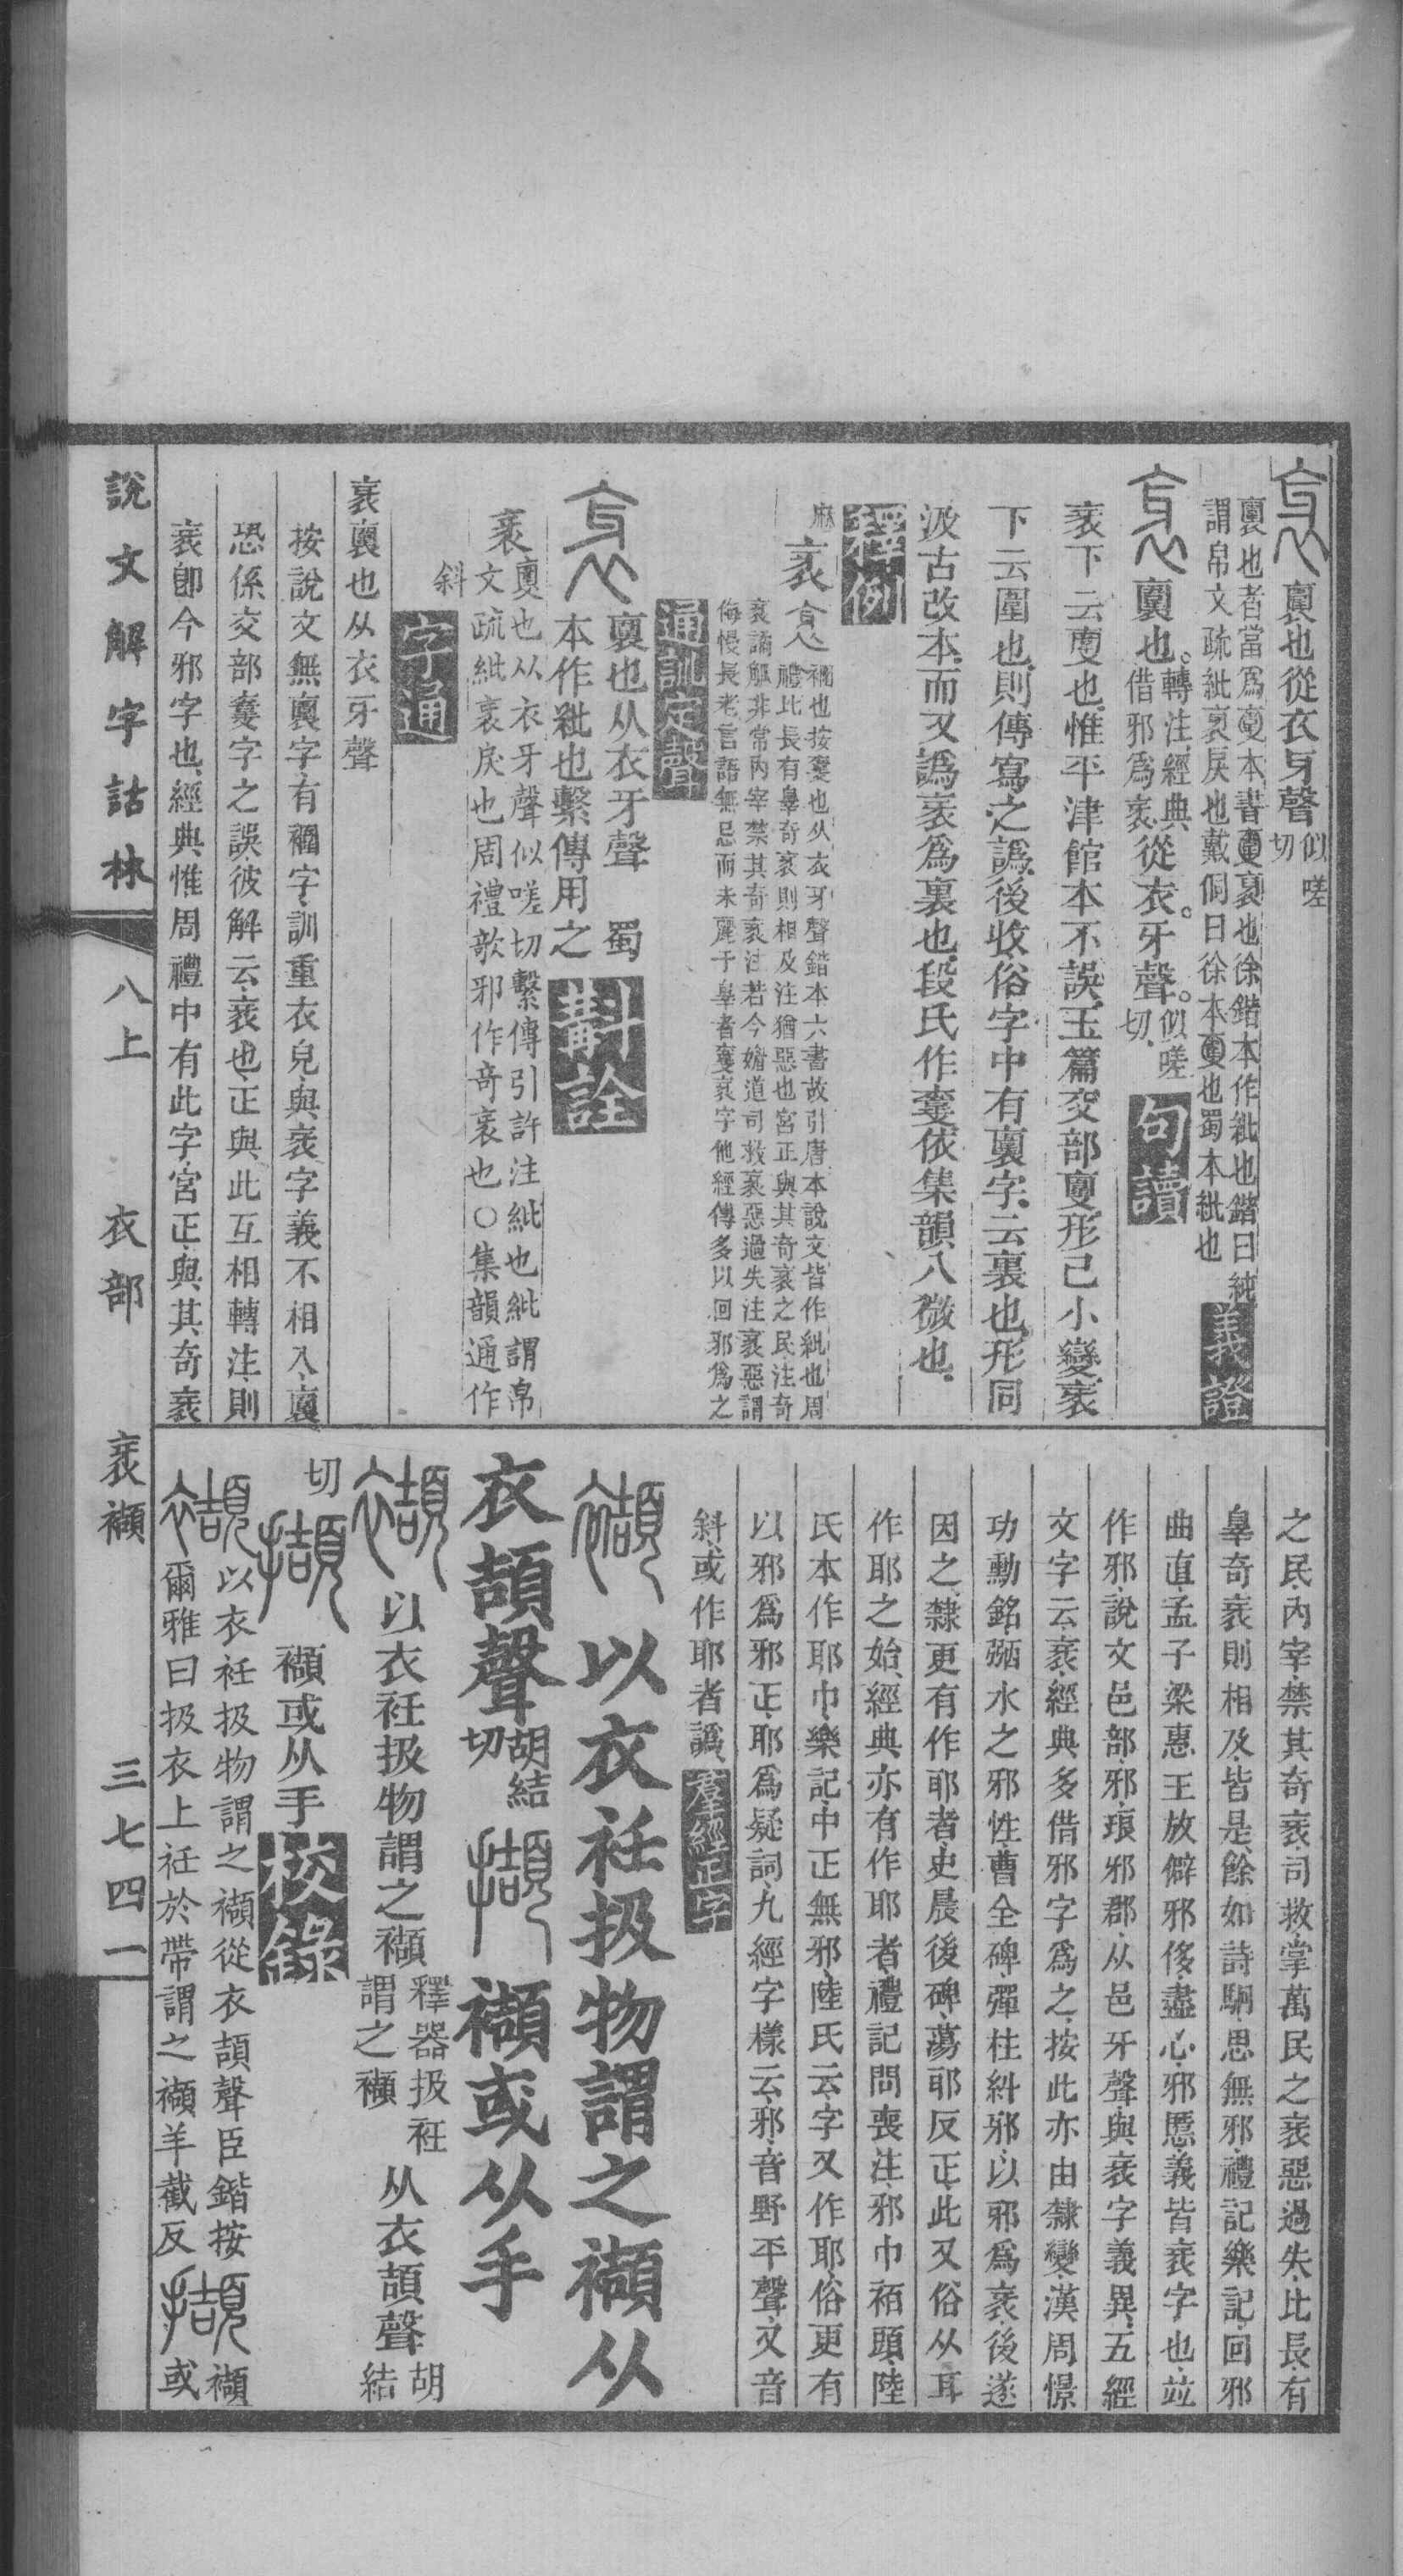 褱也從衣牙聲似嗟切
褱也者當爲本書褱也徐鍇本作紕也鍇曰純
謂帛文疏紕衺戾也戴侗曰徐本也蜀本紕也
義證
也轉注經典借邪爲衺從衣牙聲似嗟切
句讀
衺下云也惟平津館本不誤玉篇交部形已小變衺
下云圍也則傳寫之譌後收俗字中有字云裏也形同
汲古改本而又譌衺爲裏也段氏作依集韻八微也
釋例
麻
衺
也按也从衣牙聲鍇本六書故引唐本說文皆作紕也周
禮比長有辠奇衺則相及注猶惡也宮正與其奇衺之民注奇
衺譎觚非常內宰禁其奇衺注若今媚道司救衺惡過失注衺惡謂
侮慢長老言語無忌而未麗于辠者衺字他經傳多以回邪爲之
通訓定聲
也从衣牙聲 蜀
本作紕也繫傳用之
斠詮
衺
也从衣牙聲似嗟切繫傳引許注紕也紕謂帛
文疏紕衺戾也周禮歌邪作奇衺也○集韻通作
斜
字通
衺也从衣牙聲
按說文無字有字訓重衣皃與衺字義不相入
恐係交部字之誤彼解云衺也正與此互相轉注則
衺卽今邪字也經典惟周禮中有此字宮正與其奇衺
之民內宰禁其奇衺司救掌萬民之衺惡過失比長有
辠奇衺則相及皆是餘如詩駉思無邪禮記樂記回邪
曲直孟子梁惠王放僻邪侈盡心邪慝義皆衺字也竝
作邪說文邑部邪琅邪郡从邑牙聲與衺字義異五經
文字云衺經典多借邪字爲之按此亦由隸變漢周憬
功勳銘弱水之邪性曹全碑彈枉糾邪以邪爲衺後遂
因之隸更有作耶者史晨後碑蕩耶反正此又俗从耳
作耶之始經典亦有作耶者禮記問喪注邪巾袹頭陸
氏本作耶巾樂記中正無邪陸氏云字又作耶俗更有
以邪爲邪正耶爲疑詞九經字樣云邪音野平聲又音
斜或作耶者譌
羣經正字
襭 以衣衽扱物謂之襭从
衣頡聲胡結切 擷 襭或从手
襭 以衣衽扱物謂之襭釋器扱衽謂之襭从衣頡聲胡結
切 擷 襭或从手
校錄
襭 以衣衽扱物謂之襭從衣頡聲臣鍇按
爾雅曰扱衣上衽於帶謂之襭羊截反 擷 襭或
說文解字詁林 八上 衣部 衺襭 三七四一